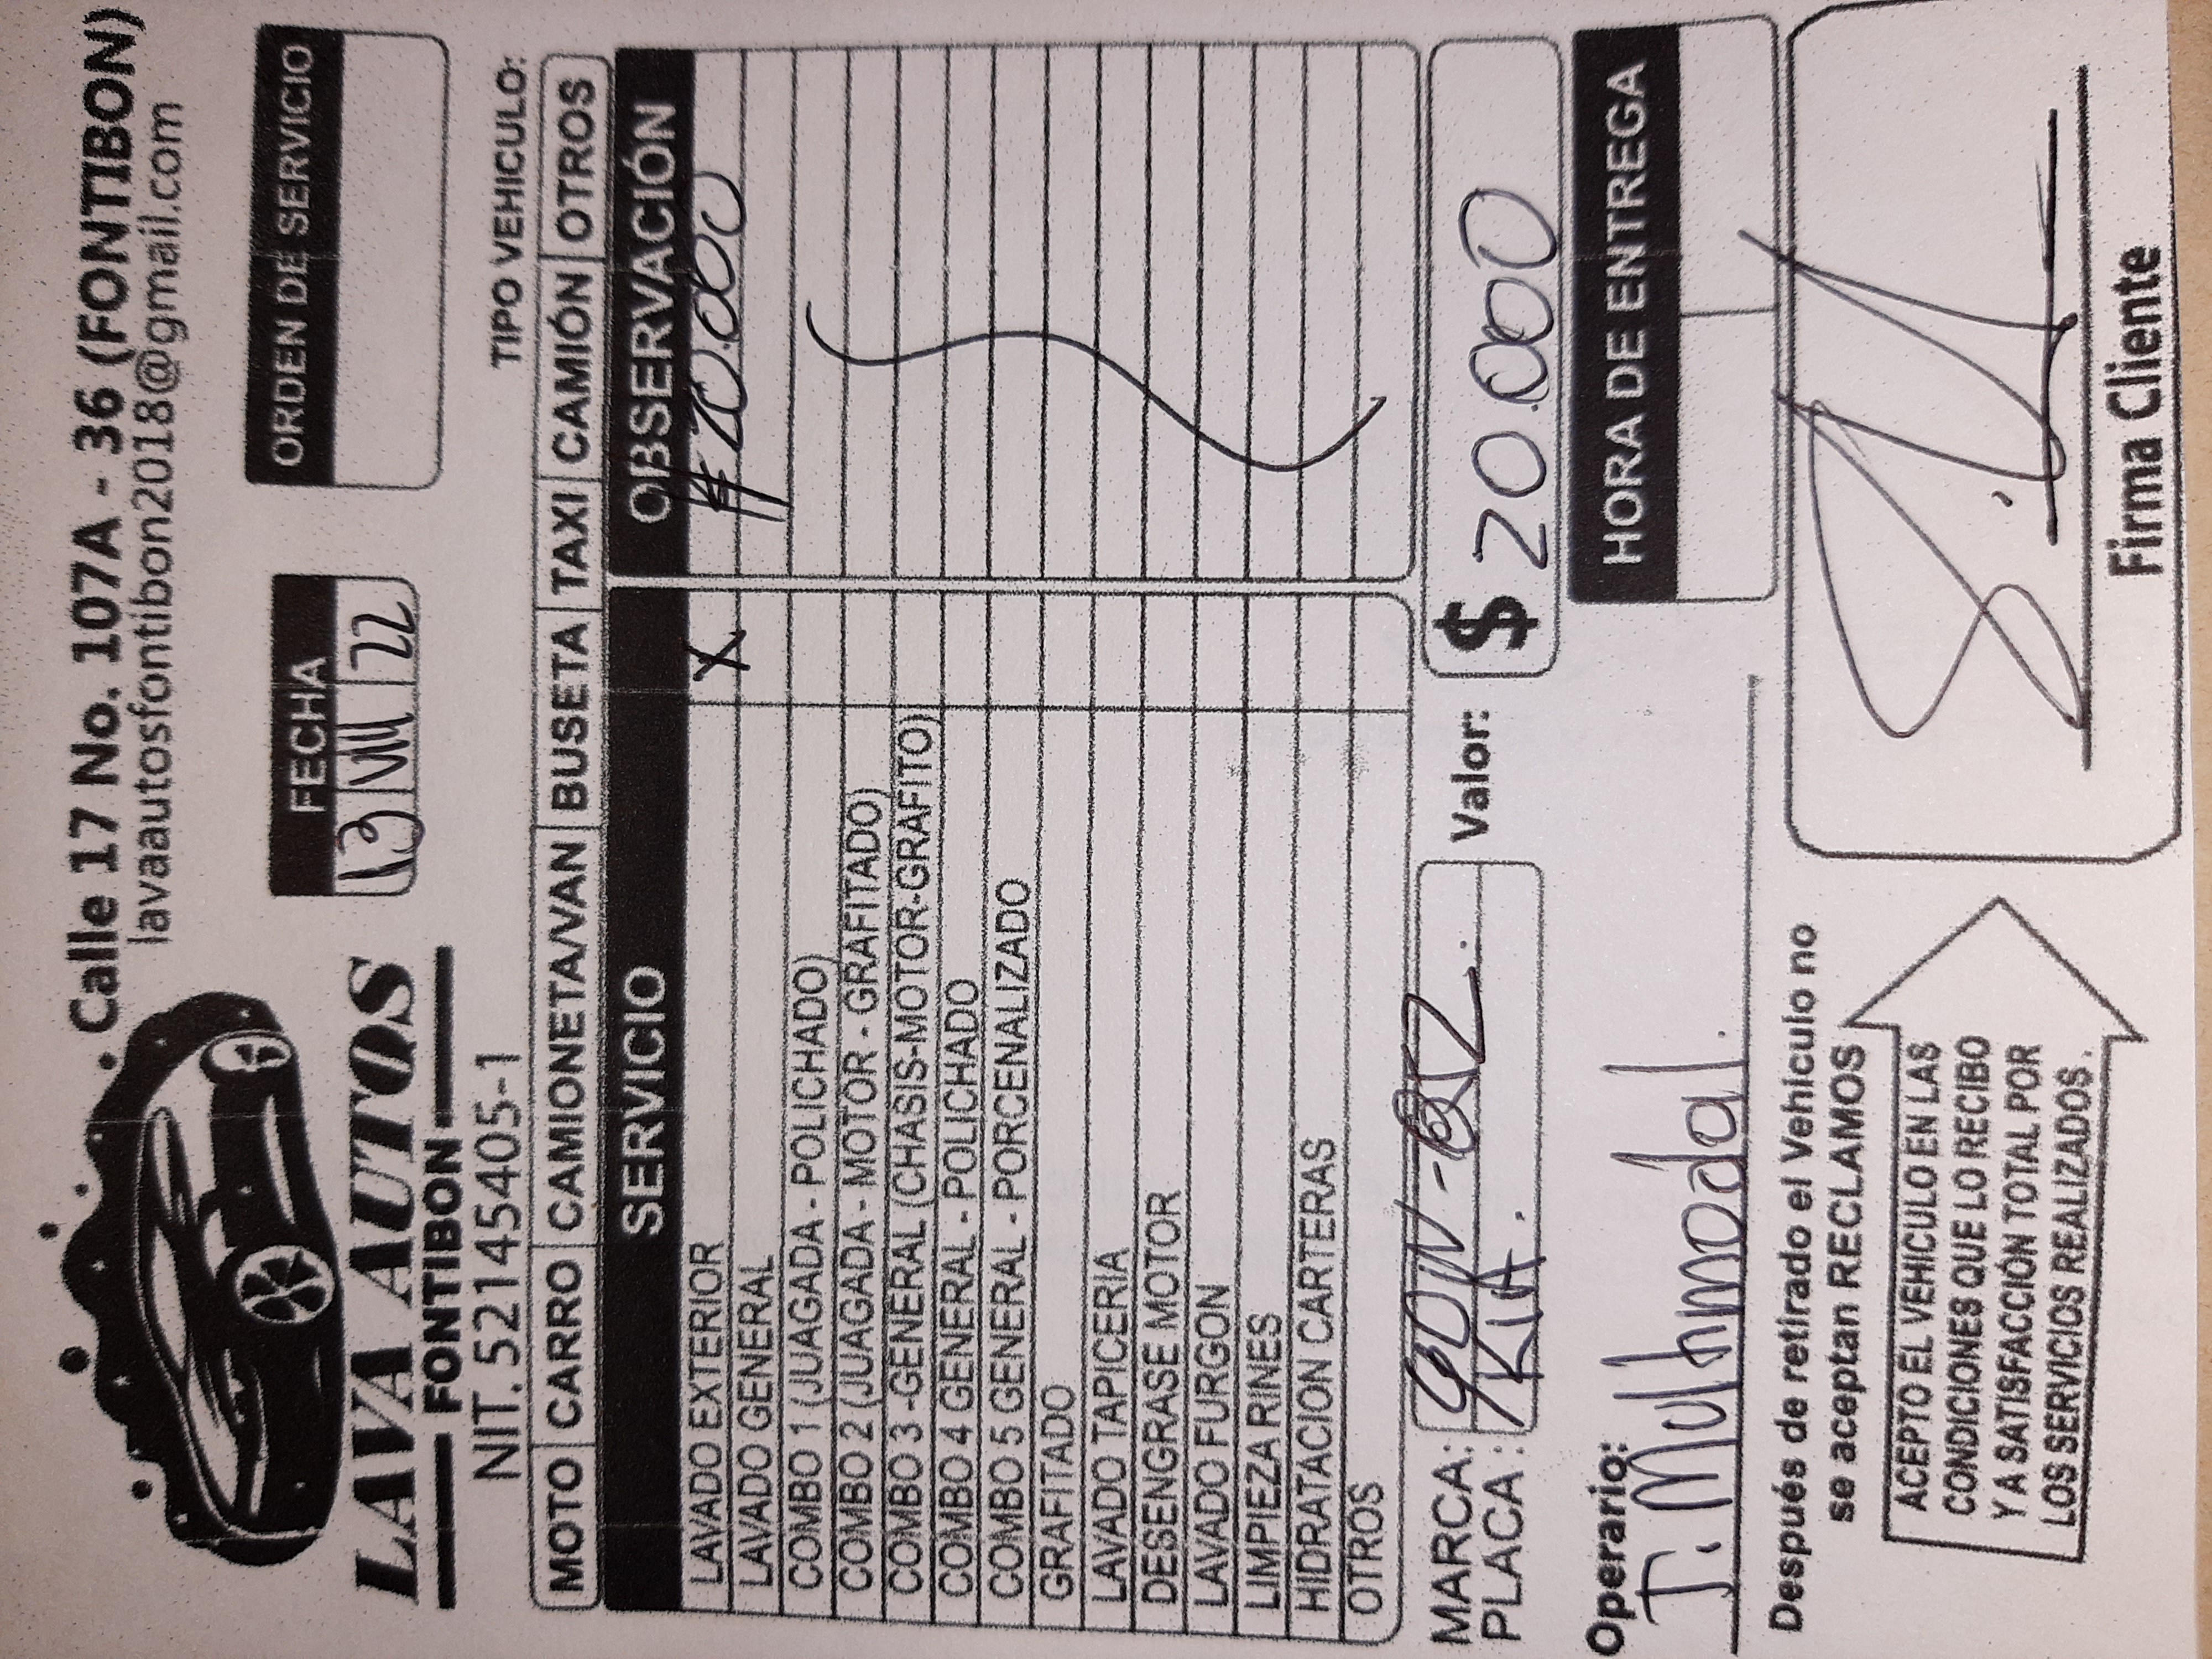 Calle 17 No. 107A - 36 (FONTIBON)
lavaautosfontibon2018@gmail.com
LAVA AUTOS
FONTIBON
NIT. 52145405-1
FECHA
13 VIII 22
ORDEN DE SERVICIO
TIPO VEHICULO:
MOTO CARRO CAMIONETA/VAN BUSETA TAXI CAMIÓN OTROS
SERVICIO OBSERVACIÓN
LAVADO EXTERIOR X # 20.000
LAVADO GENERAL
COMBO 1 (JUAGADA - POLICHADO)
COMBO 2 (JUAGADA - MOTOR - GRAFITADO)
COMBO 3 -GENERAL (CHASIS-MOTOR-GRAFITO)
COMBO 4 GENERAL - POLICHADO
COMBO 5 GENERAL - PORCENALIZADO
GRAFITADO
LAVADO TAPICERIA
DESENGRASE MOTOR
LAVADO FURGON
LIMPIEZA RINES
HIDRATACION CARTERAS
OTROS
MARCA:
PLACA : KIA.
Valor: $ 20.000
Operario:
HORA DE ENTREGA
Después de retirado el Vehiculo no
se aceptan RECLAMOS
ACEPTO EL VEHICULO EN LAS
CONDICIONES QUE LO RECIBO
Y A SATISFACCIÓN TOTAL POR
LOS SERVICIOS REALIZADOS.
Firma Cliente